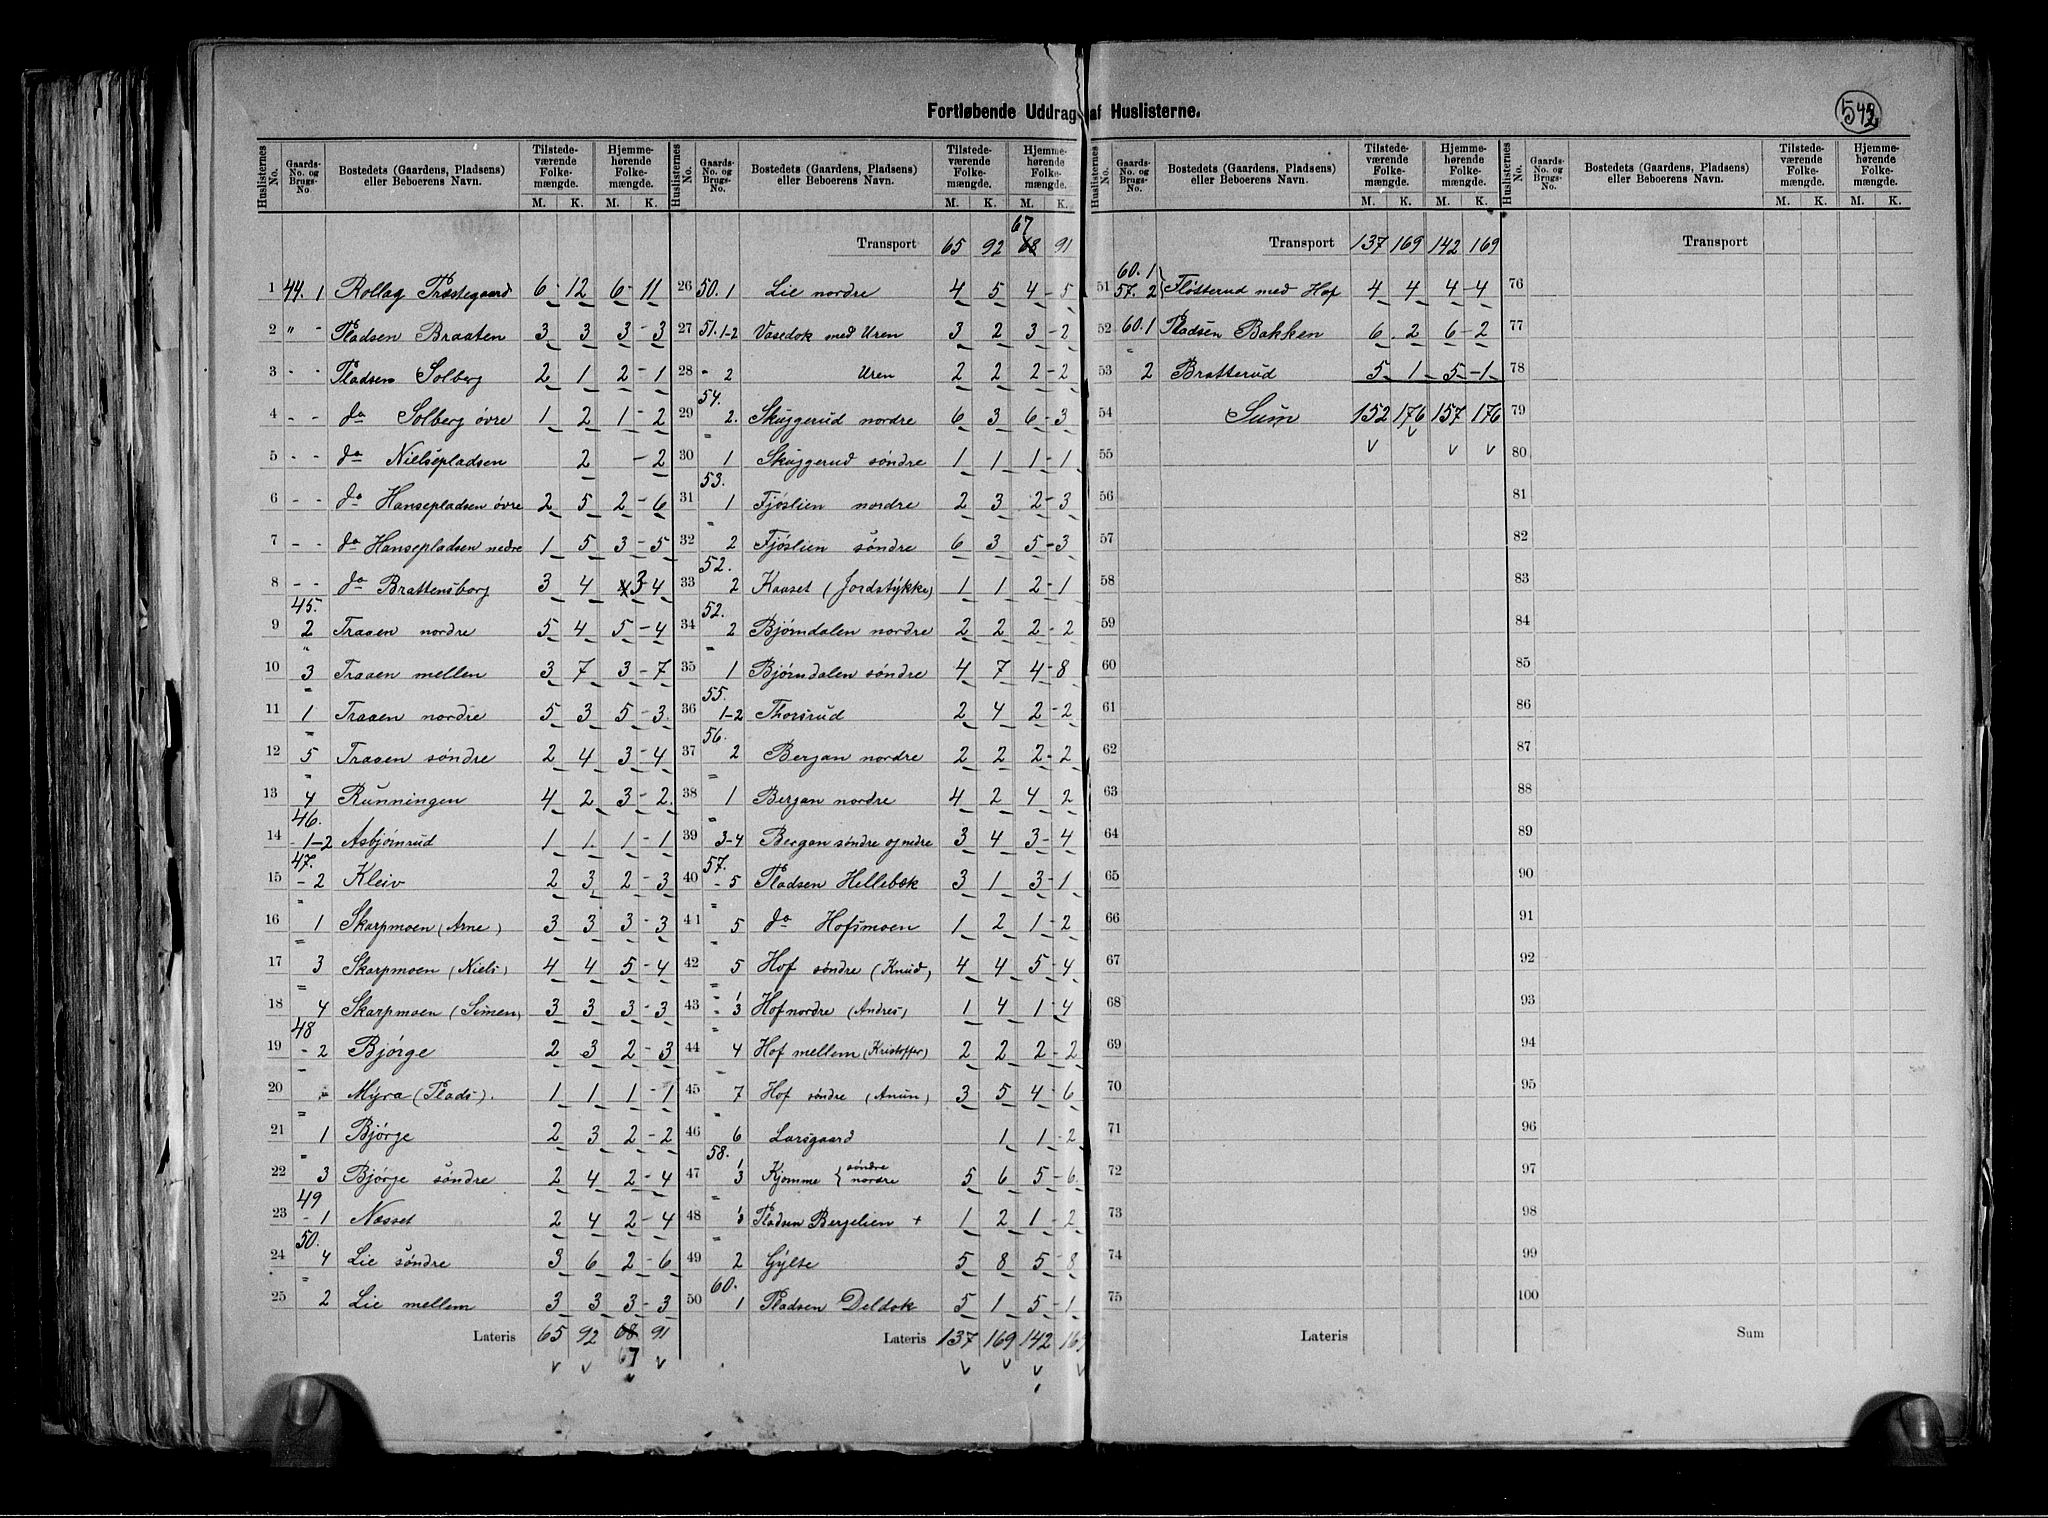 Fortløbende Uddrag af Huslisterne.
542
Huslisternes No. Gaards-No. og Brugs-No. Bostedets (Gaardens, Pladsens) eller Beboerens Navn. Tilstedeværende Folkemængde. M. K. Hjemmehørende Folkemængde. M. K.
1 44. 1 Rollag Præstegaard 6 12 6 - 11
2 " - Pladsen Braaten 3 3 3 - 3
3 - - Pladsen Solberg 2 1 2 - 1
4 - - do Solberg øvre 1 2 1 - 2
5 - - do Nielsepladsen 2 - 2
6 - - do Hansepladsen øvre 2 5 2 - 6
7 - - do Hansepladsen nedre 1 5 3 - 5
8 - - do Brattensborg 3 4 3 - 4
9 45. 2 Traaen nordre 5 4 5 - 4
10 " 3 Traaen mellen 3 7 3 - 7
11 " 1 Traaen nordre 5 3 5 - 3.
12 5 Traaen søndre 2 4 3 - 4
13 " 4 Runningen 4 2 3 - 2.
14 46. 1-2 Asbjørnrud 1 1. 1 - 1
15 47. - 2 Kleiv 2 3 2 - 3
16 " 1 Skarpmoen (Arne) 3 3 3 - 3
17 " 3 Skarpmoen (Niels) 4 4 5 - 4
18 " 4 Skarpmoen (Simen) 3 3 3 - 3
19 48 - 2 Bjørge 2 3 2 - 3
20 " Myra (Plads). 1 1 1 - 1
21 " 1 Bjørge 2 3 2 - 2
22 3 Bjørge søndre 2 4 2 - 4
23 49 - 1 Næsset 2 4 2 - 4
24 50. 4 Lie søndre 3 6 2 - 6
25 " 2 Lie mellem 3 3 3 - 3
Lateris 65 92 68 91
67
Transport 65 92 68 67 91
26 50. 1 Lie nordre 4 5 4 - 5
27 51. 1-2 Vasedok med Uren 3 2 3 - 2
28 - 2 Uren 2 2 2 - 2
29 54. 2. Skuggerud nordre 6 3 6 - 3
30 " 1 Skuggerud søndre 1 1 1 - 1
31 53. 1 Fjøslien nordre 2 3 2 - 3
32 " 2 Fjøslien søndre 6 3 5 - 3
33 52. 2 Kaaset (Jordstykke) 1 1 2 - 1
34 52. 2 Bjørndalen nordre 2 2 2 - 2
35 " 1 Bjørndalen søndre 4 7 4 - 8
36 55. 1-2 Thorsrud 2 4 2 - 2
37 56. 2 Bergan nordre 2 2 2 - 2
38 " 1 Bergan nordre 4 2 4 2
39 " 3-4 Bergan søndre og nedre 3 4 3 - 4
40 57. - 5 Pladsen Hellebæk 3 1 3 - 1
41 " 5 do Hofsmoen 1 2 1 - 2
42 " 5 Hof søndre (Knud) 4 4 5 - 4
43 " 1 3 Hof nordre (Andres) 1 4 1 - 4
44 4 Hof mellem (Kristoffer) 2 2 2 - 2
45 " 7 Hof søndre (Anun) 3 5 4 - 6
46 " 6 Larsgaard 1 1 - 2
47 58. 1 3 Kjømme { søndre nordre 5 6 5 - 6.
48 " 1 3 Pladsen Bergelien + 1 2 1 - 2
49 " 2 Gylte 5 8 5 - 8
50 60. 1 Pladsen Deldok 5 1 5 - 1
Lateris 137 169 142 169
Transport 137 169 142 169
51 60. 1 57. 2 } Fløsterud med Hof 4 4 4 - 4
52 60. 1 Pladsen Bakken 6 2 6 - 2
53 " 2 Bratterud 5 1 5 - 1
54 Sum 152 176 157 176
55
56
57
58
59
60
61
62
63
64
65
66
67
68
69
70
71
72
73
74
75
Lateris
Transport
76
77
78
79
80
81
82
83
84
85
86
87
88
89
90
91
92
93
94
95
96
97
98
99
100
Sum